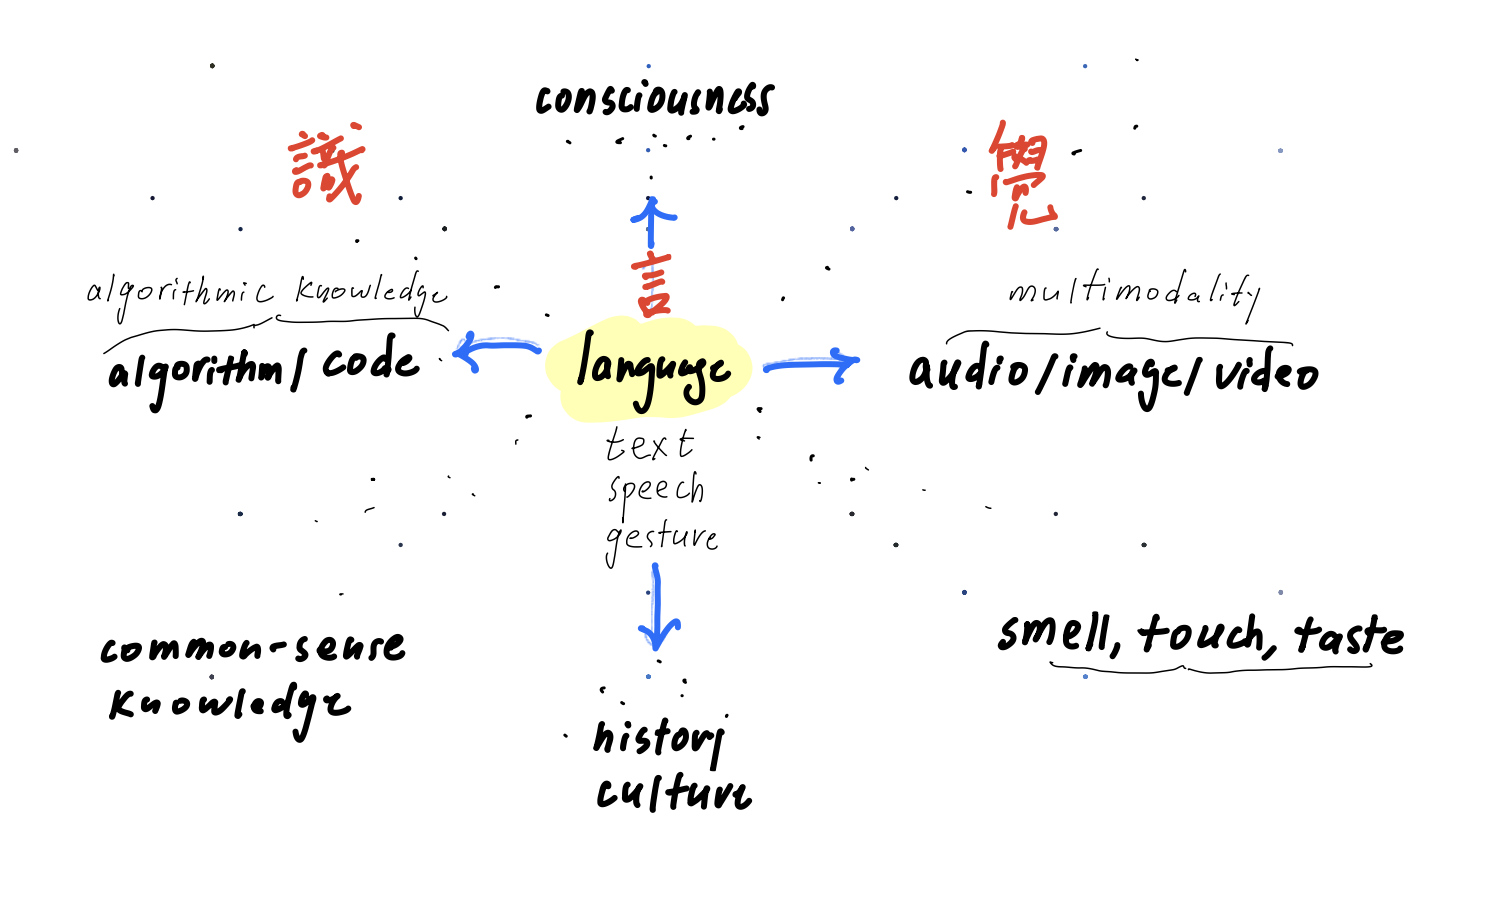 consciousness
識
覺
algorithmic knowledge
言
multimodality
algorithm/ code
language
audio/image/video
text
speech
gesture
common-sense
knowledge
smell, touch, taste
history
culture